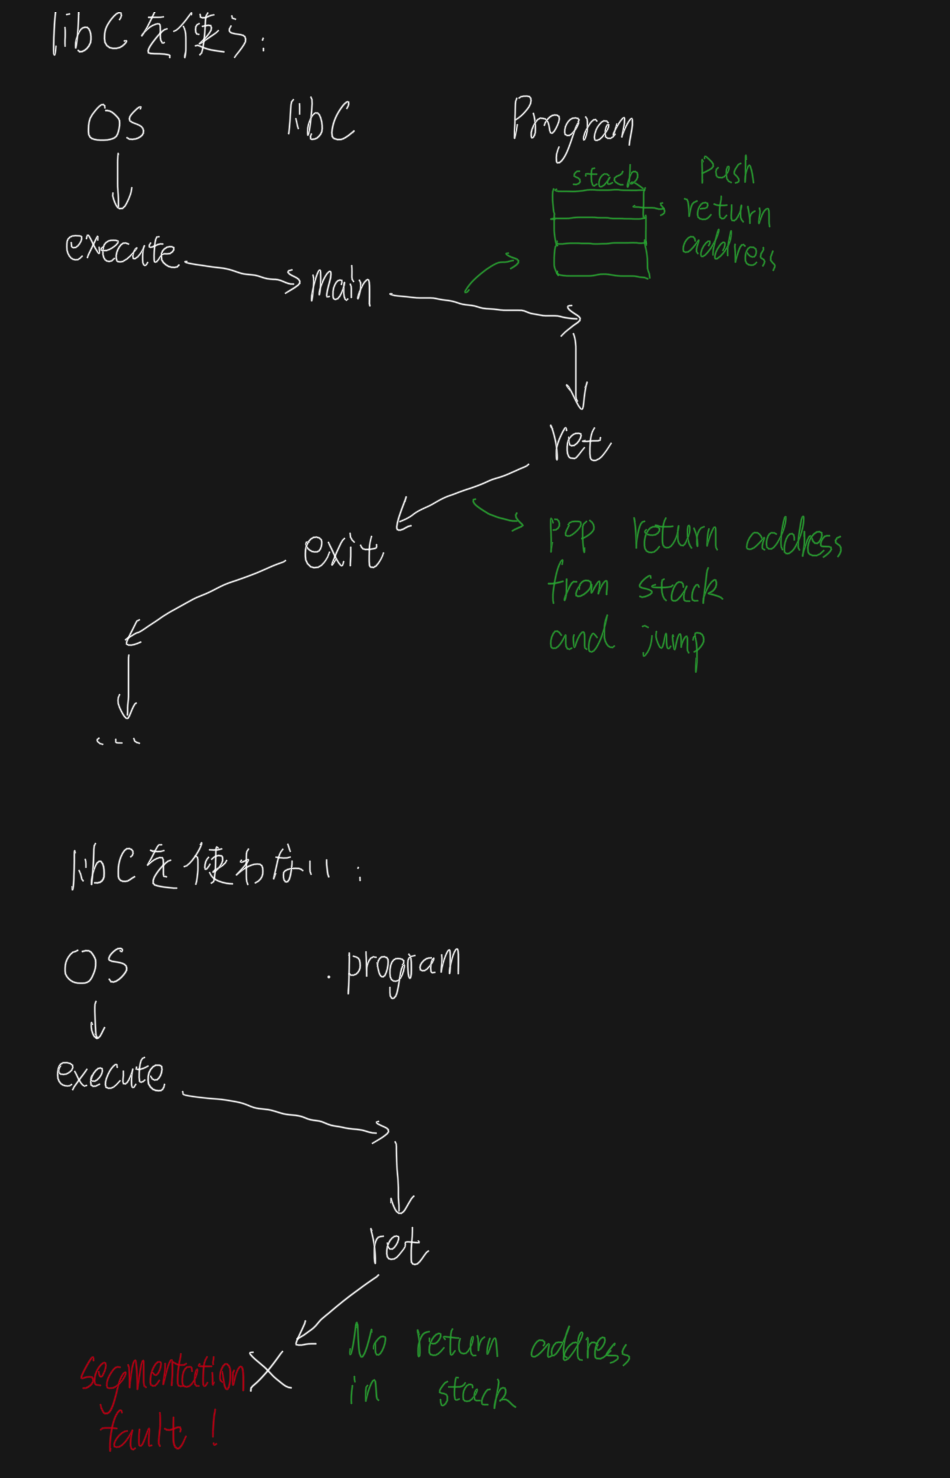 libCを使ら:
OS libC Program
stack
Push
return
address
execute
main
ret
exit
pop return address
from stack
and jump
...
libCを使わない:
OS .program
execute
ret
No return address
in stack
segmentation
fault!